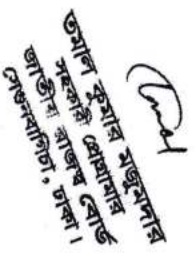 তমাল কুমার মজুমদার
সহকারী প্রোগ্রামার
জাতীয় রাজস্ব বোর্ড
সেগুনবাগিচা, ঢাকা।